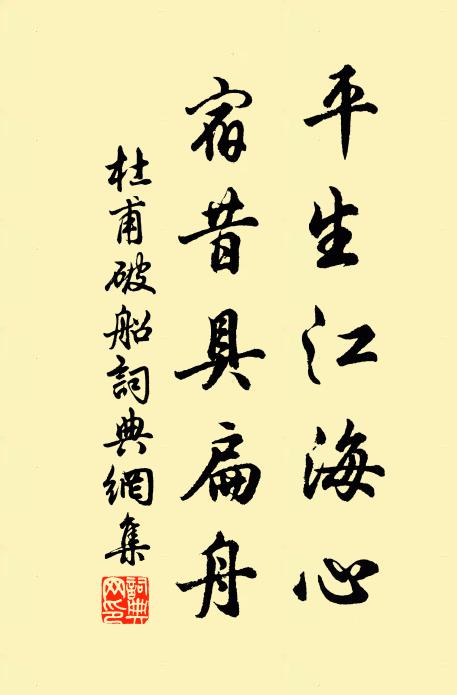 平生江海心
宿昔具扁舟
杜甫破船詞典網集
詞典網印